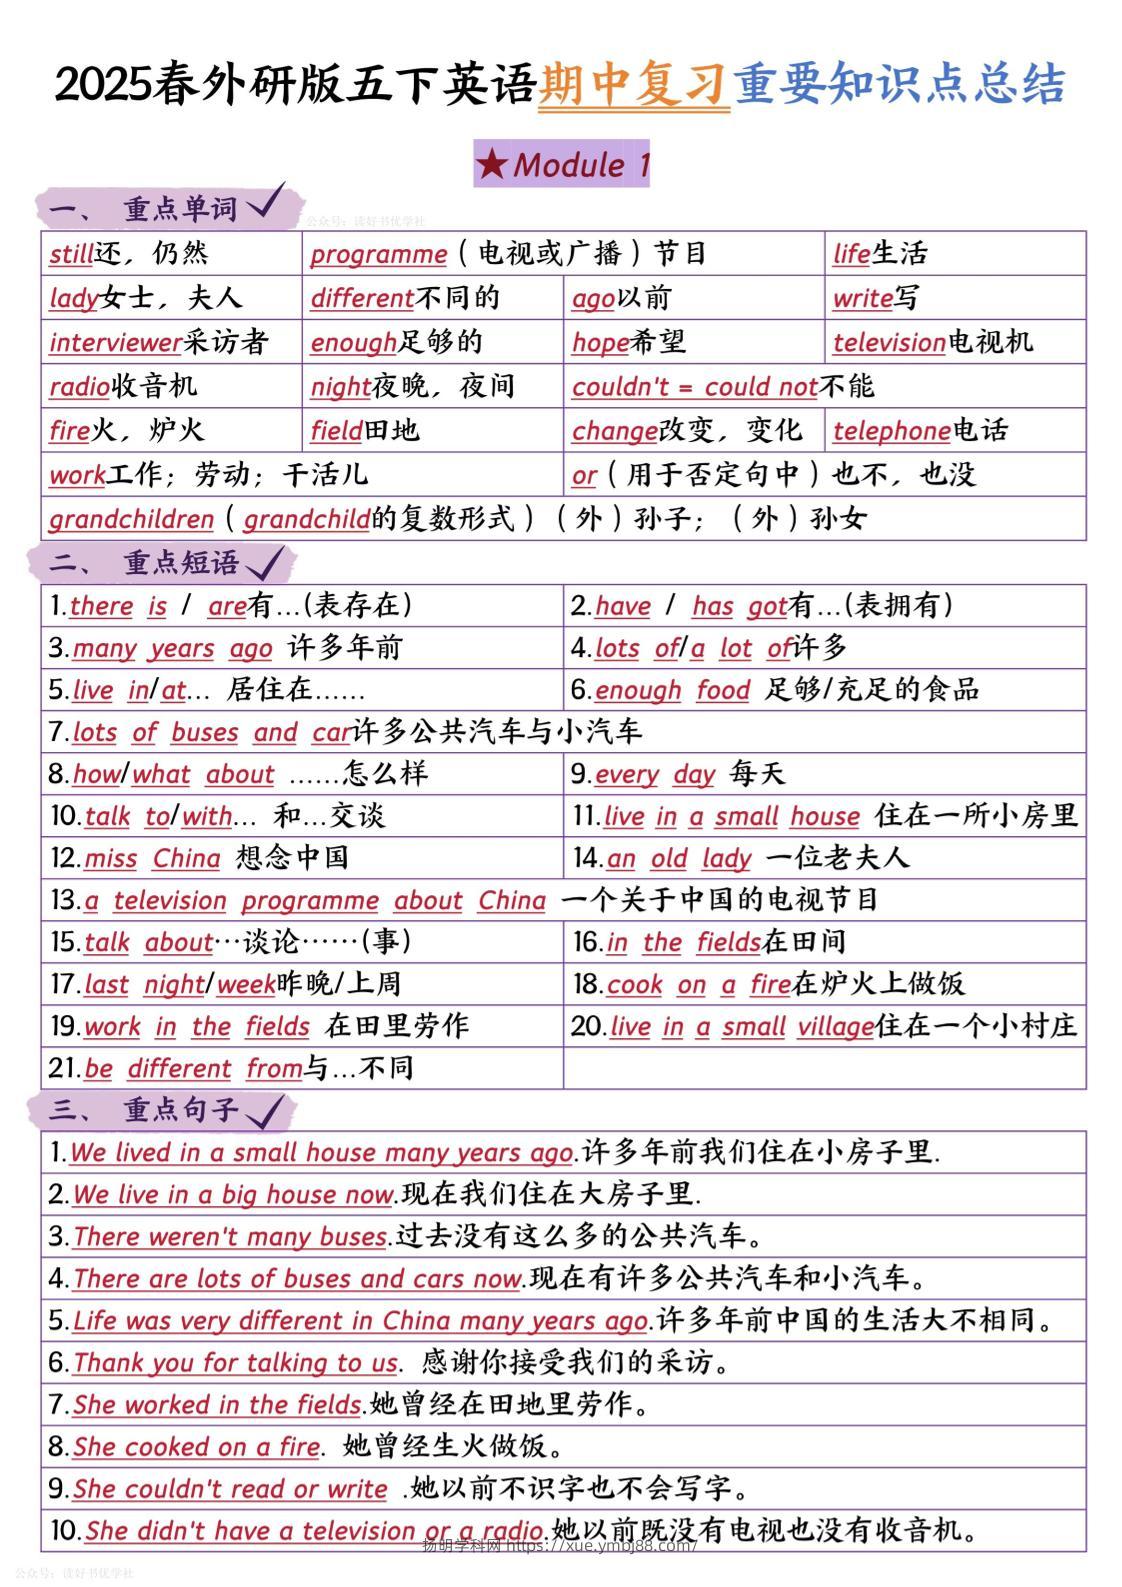 2025春外研版五下英语期中复习重要知识点总结
★Module 1
一、 重点单词
公众号：读好书优学社
still还，仍然 programme（电视或广播）节目 life生活
lady女士，夫人 different不同的 ago以前 write写
interviewer采访者 enough足够的 hope希望 television电视机
radio收音机 night夜晚，夜间 couldn't = could not不能
fire火，炉火 field田地 change改变，变化 telephone电话
work工作；劳动；干活儿 or（用于否定句中）也不，也没
grandchildren（grandchild的复数形式）（外）孙子；（外）孙女
二、 重点短语
1.there is / are有…(表存在) 2.have / has got有…(表拥有)
3.many years ago 许多年前 4.lots of/a lot of许多
5.live in/at… 居住在…… 6.enough food 足够/充足的食品
7.lots of buses and car许多公共汽车与小汽车
8.how/what about ……怎么样 9.every day 每天
10.talk to/with… 和…交谈 11.live in a small house 住在一所小房里
12.miss China 想念中国 14.an old lady 一位老夫人
13.a television programme about China 一个关于中国的电视节目
15.talk about…谈论……(事) 16.in the fields在田间
17.last night/week昨晚/上周 18.cook on a fire在炉火上做饭
19.work in the fields 在田里劳作 20.live in a small village住在一个小村庄
21.be different from与…不同
三、 重点句子
1.We lived in a small house many years ago.许多年前我们住在小房子里.
2.We live in a big house now.现在我们住在大房子里.
3.There weren't many buses.过去没有这么多的公共汽车。
4.There are lots of buses and cars now.现在有许多公共汽车和小汽车。
5.Life was very different in China many years ago.许多年前中国的生活大不相同。
6.Thank you for talking to us. 感谢你接受我们的采访。
7.She worked in the fields.她曾经在田地里劳作。
8.She cooked on a fire. 她曾经生火做饭。
9.She couldn't read or write .她以前不识字也不会写字。
10.She didn't have a television or a radio.她以前既没有电视也没有收音机。
扬明学科网 https://xue.ymbj88.com/
公众号：读好书优学社